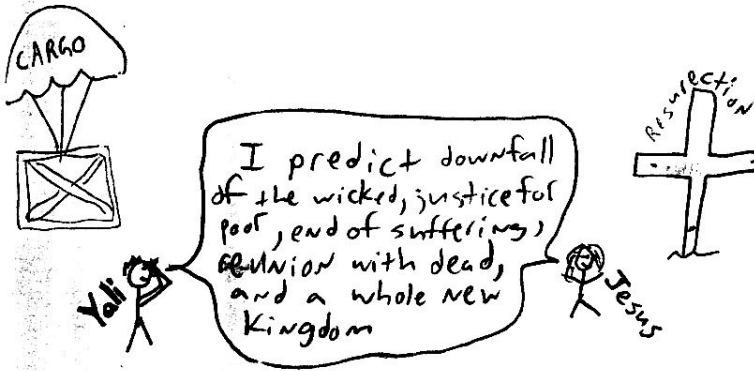 CARGO
Resurection
I predict downfall
of the wicked, justice for
poor, end of suffering,
reunion with dead,
and a whole new
Kingdom
Yali
Jesus